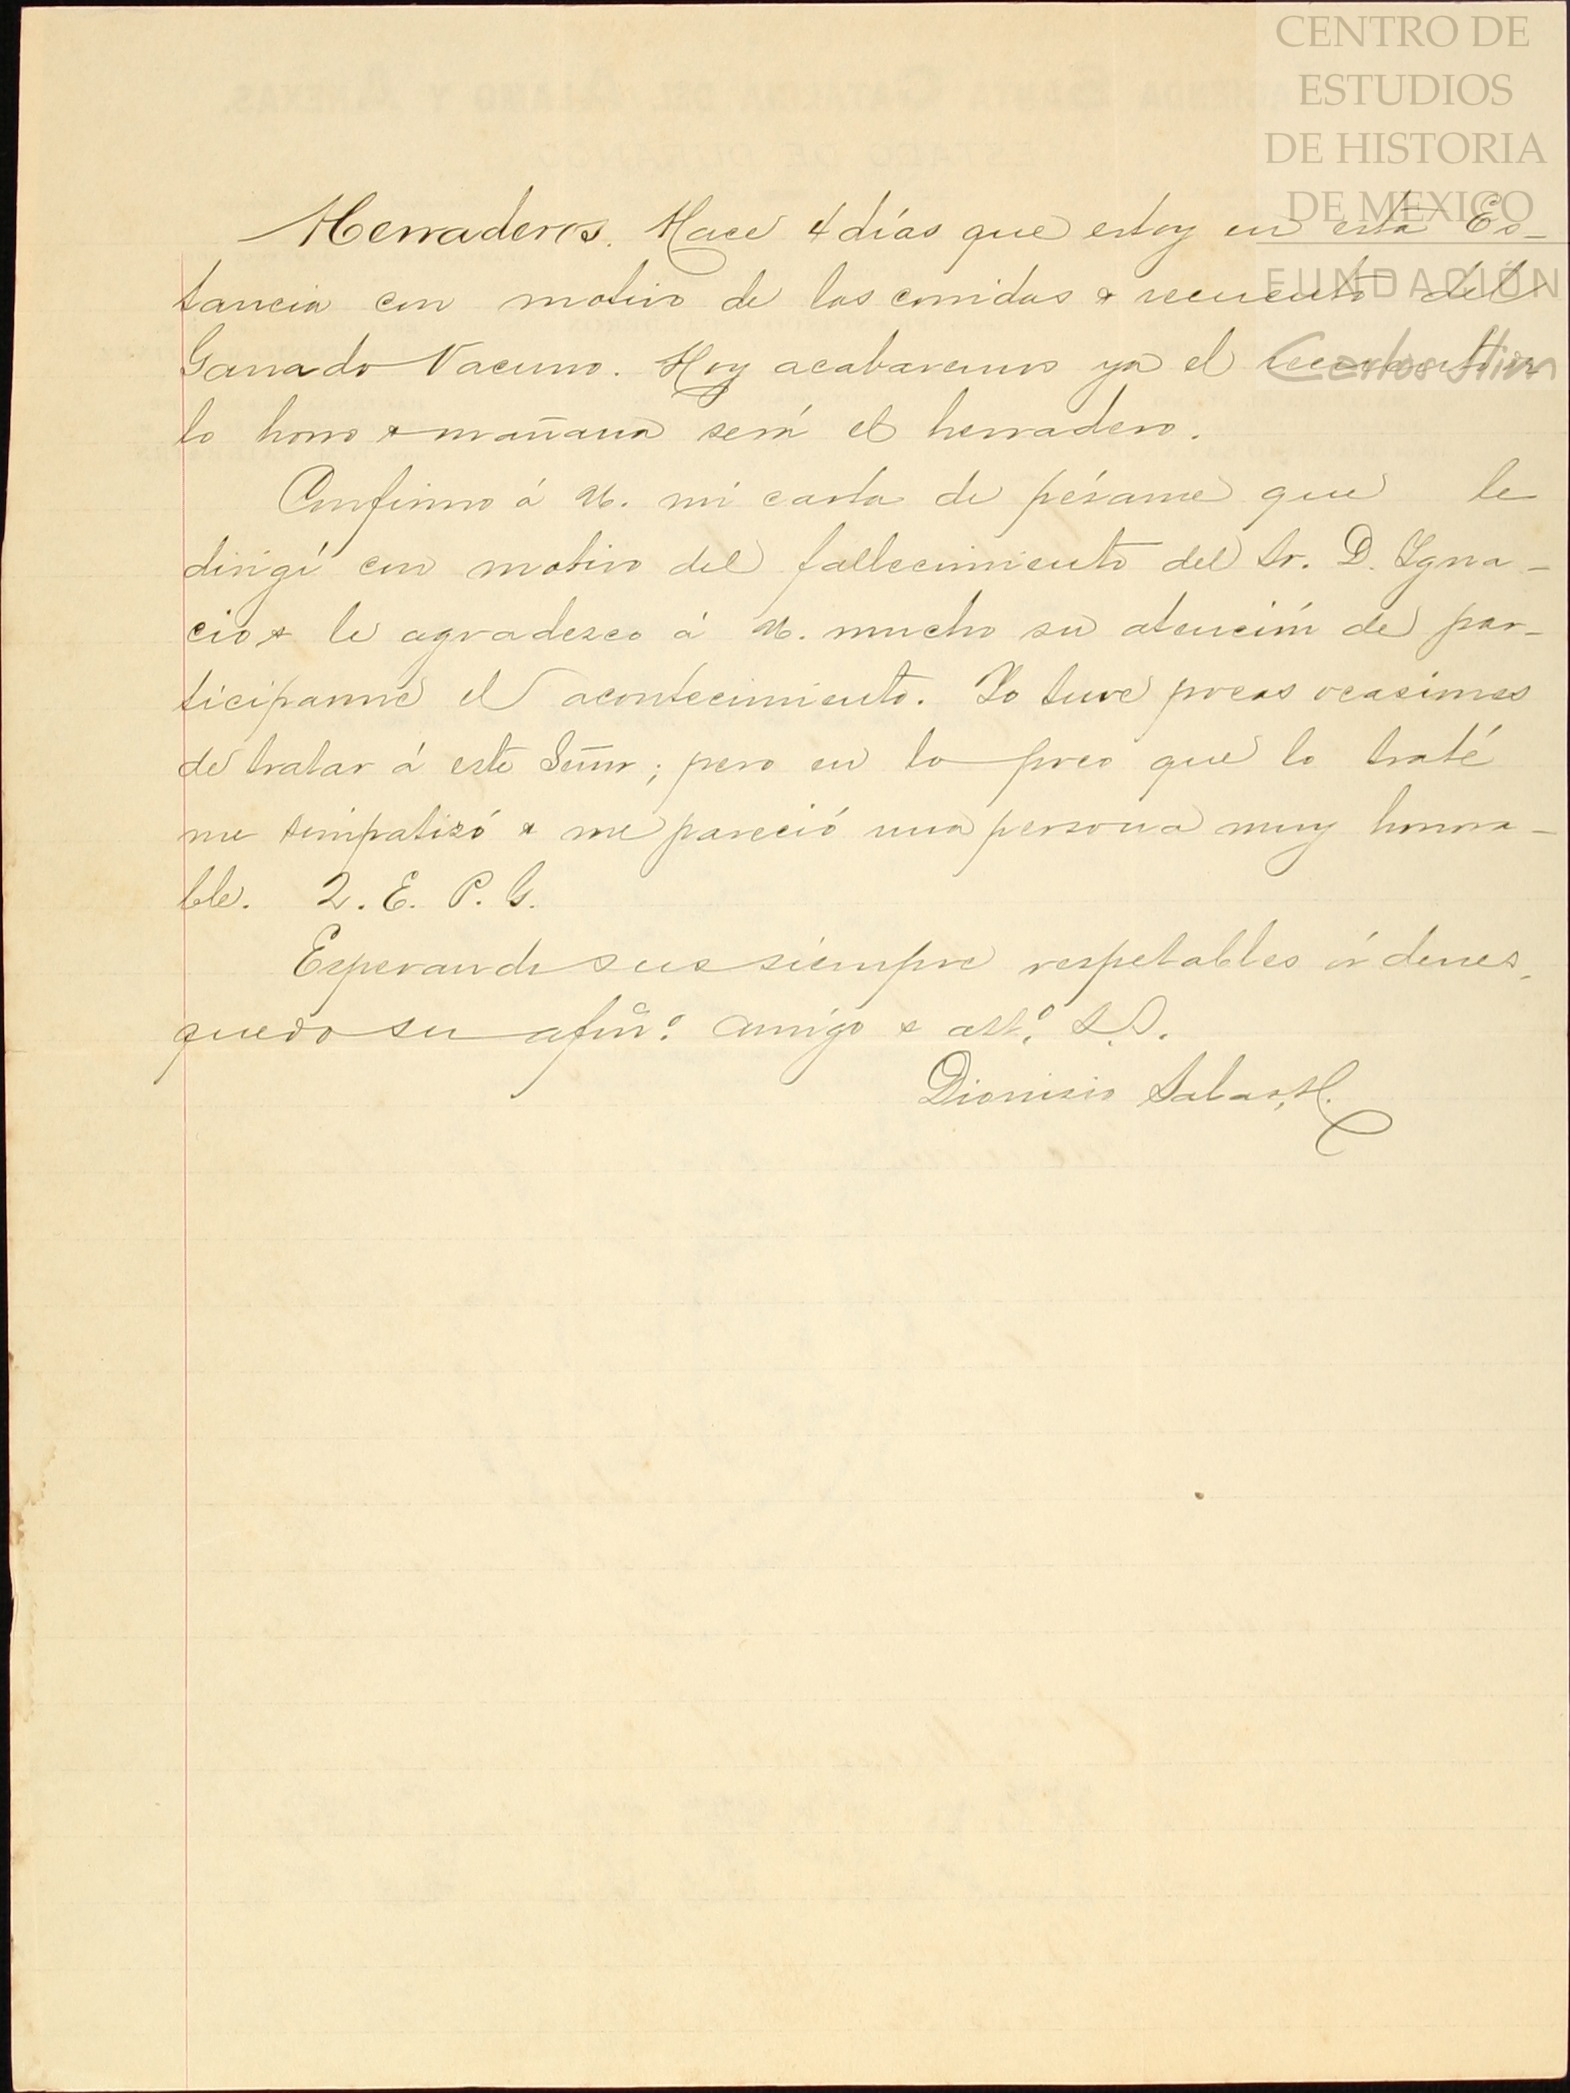 CENTRO DE
ESTUDIOS
DE HISTORIA
DE MEXICO
FUNDACIÓN
Carlos Slim
Herraderos. Hace 4 días que estoy en esta Es-
tancia con motivo de las corridas & recuento del
Ganado Vacuno. Hoy acabaremos ya el recuento en
lo horro & mañana será el herradero.
Confirmo á U. mi carta de pésame que le
dirigí con motivo del fallecimiento del Sr. D. Igna-
cio & le agradezco á U. mucho su atención de par-
ticiparme el acontecimiento. Yo tuve pocas ocasiones
de tratar á este Señor; pero en lo poco que lo traté
me simpatizó & me pareció una persona muy honora-
ble. Q. E. P. G.
Esperando sus siempre respetables órdenes,
quedo su afmº. amigo & attº. S.S.
Dionisio Salas, H.